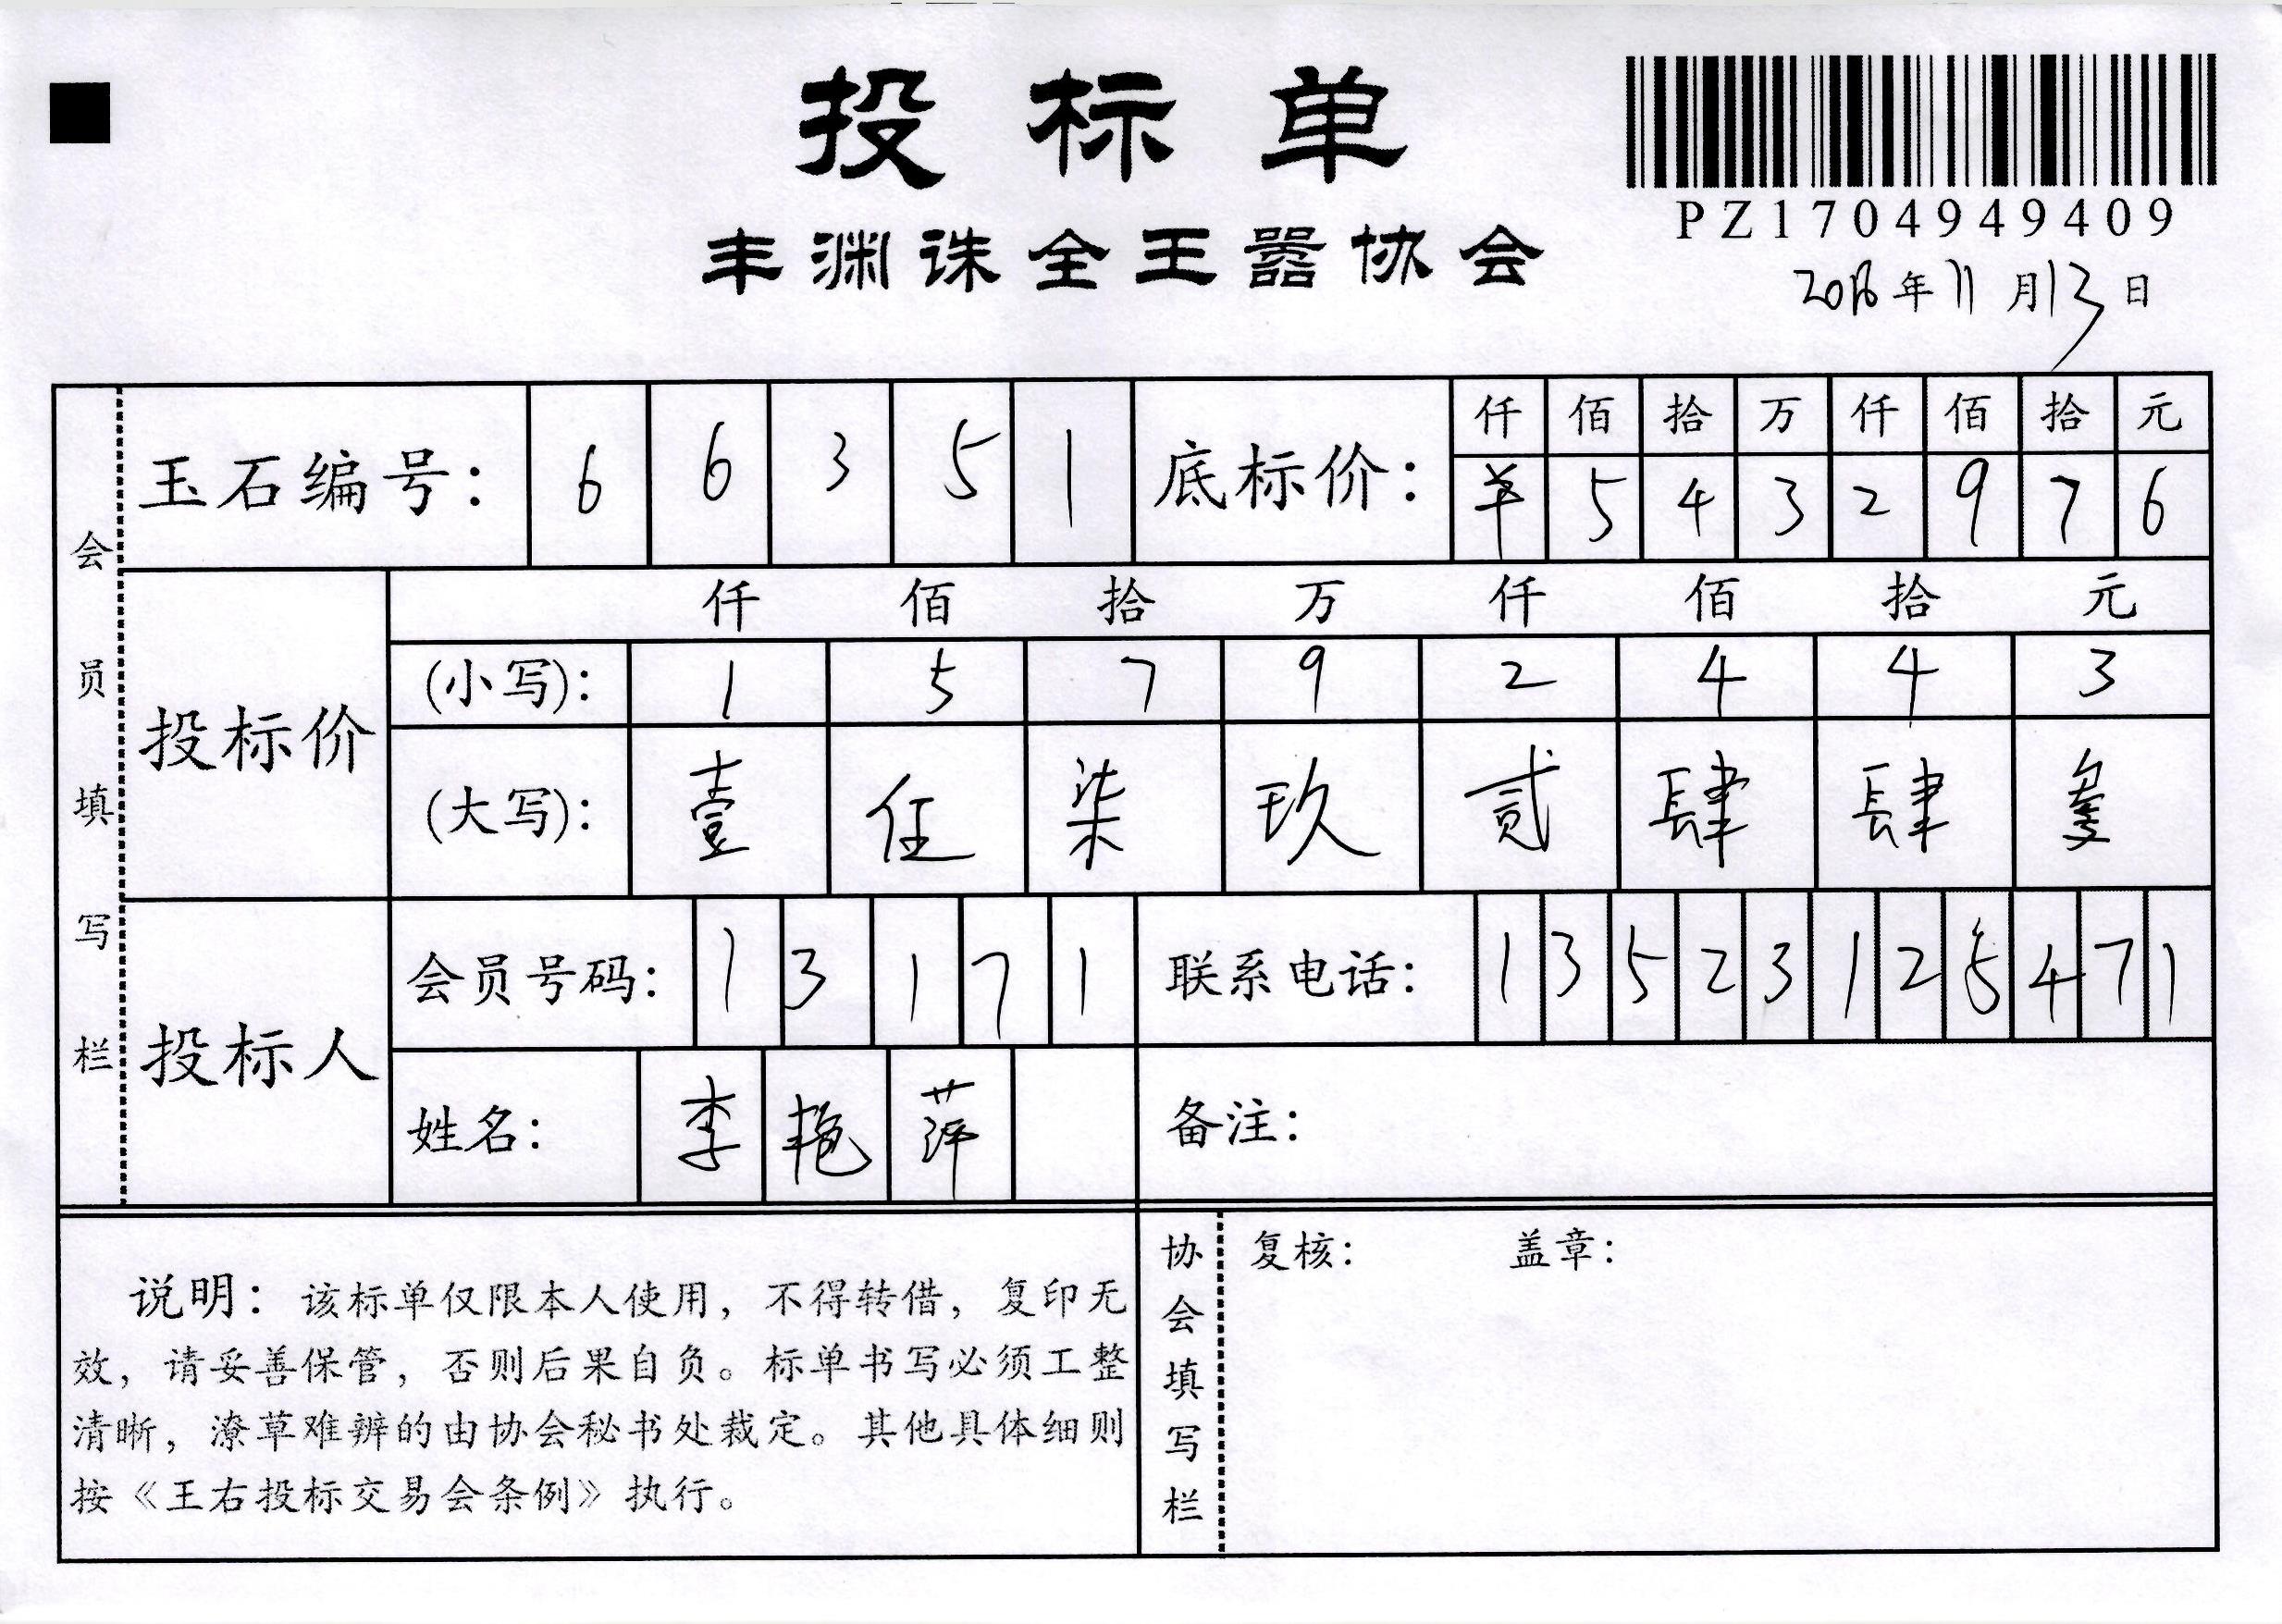 投标单
丰渊诛全王嚣协会
PZ1704949409
2016年11月13日
会员填写栏
玉石编号: 6 6 3 5 1
底标价: 仟 佰 拾 万 仟 佰 拾 元
5 4 3 2 9 7 6
投标价
仟 佰 拾 万 仟 佰 拾 元
(小写): 1 5 7 9 2 4 4 3
(大写): 壹 伍 柒 玖 贰 肆 肆 叁
投标人
会员号码: 1 3 1 7 1
联系电话: 1 3 5 2 3 1 2 5 4 7 1
姓名: 李 艳 萍
备注:
说明: 该标单仅限本人使用, 不得转借, 复印无
效, 请妥善保管, 否则后果自负。标单书写必须工整
清晰, 潦草难辨的由协会秘书处裁定。其他具体细则
按《王右投标交易会条例》执行。
协会填写栏
复核: 盖章: